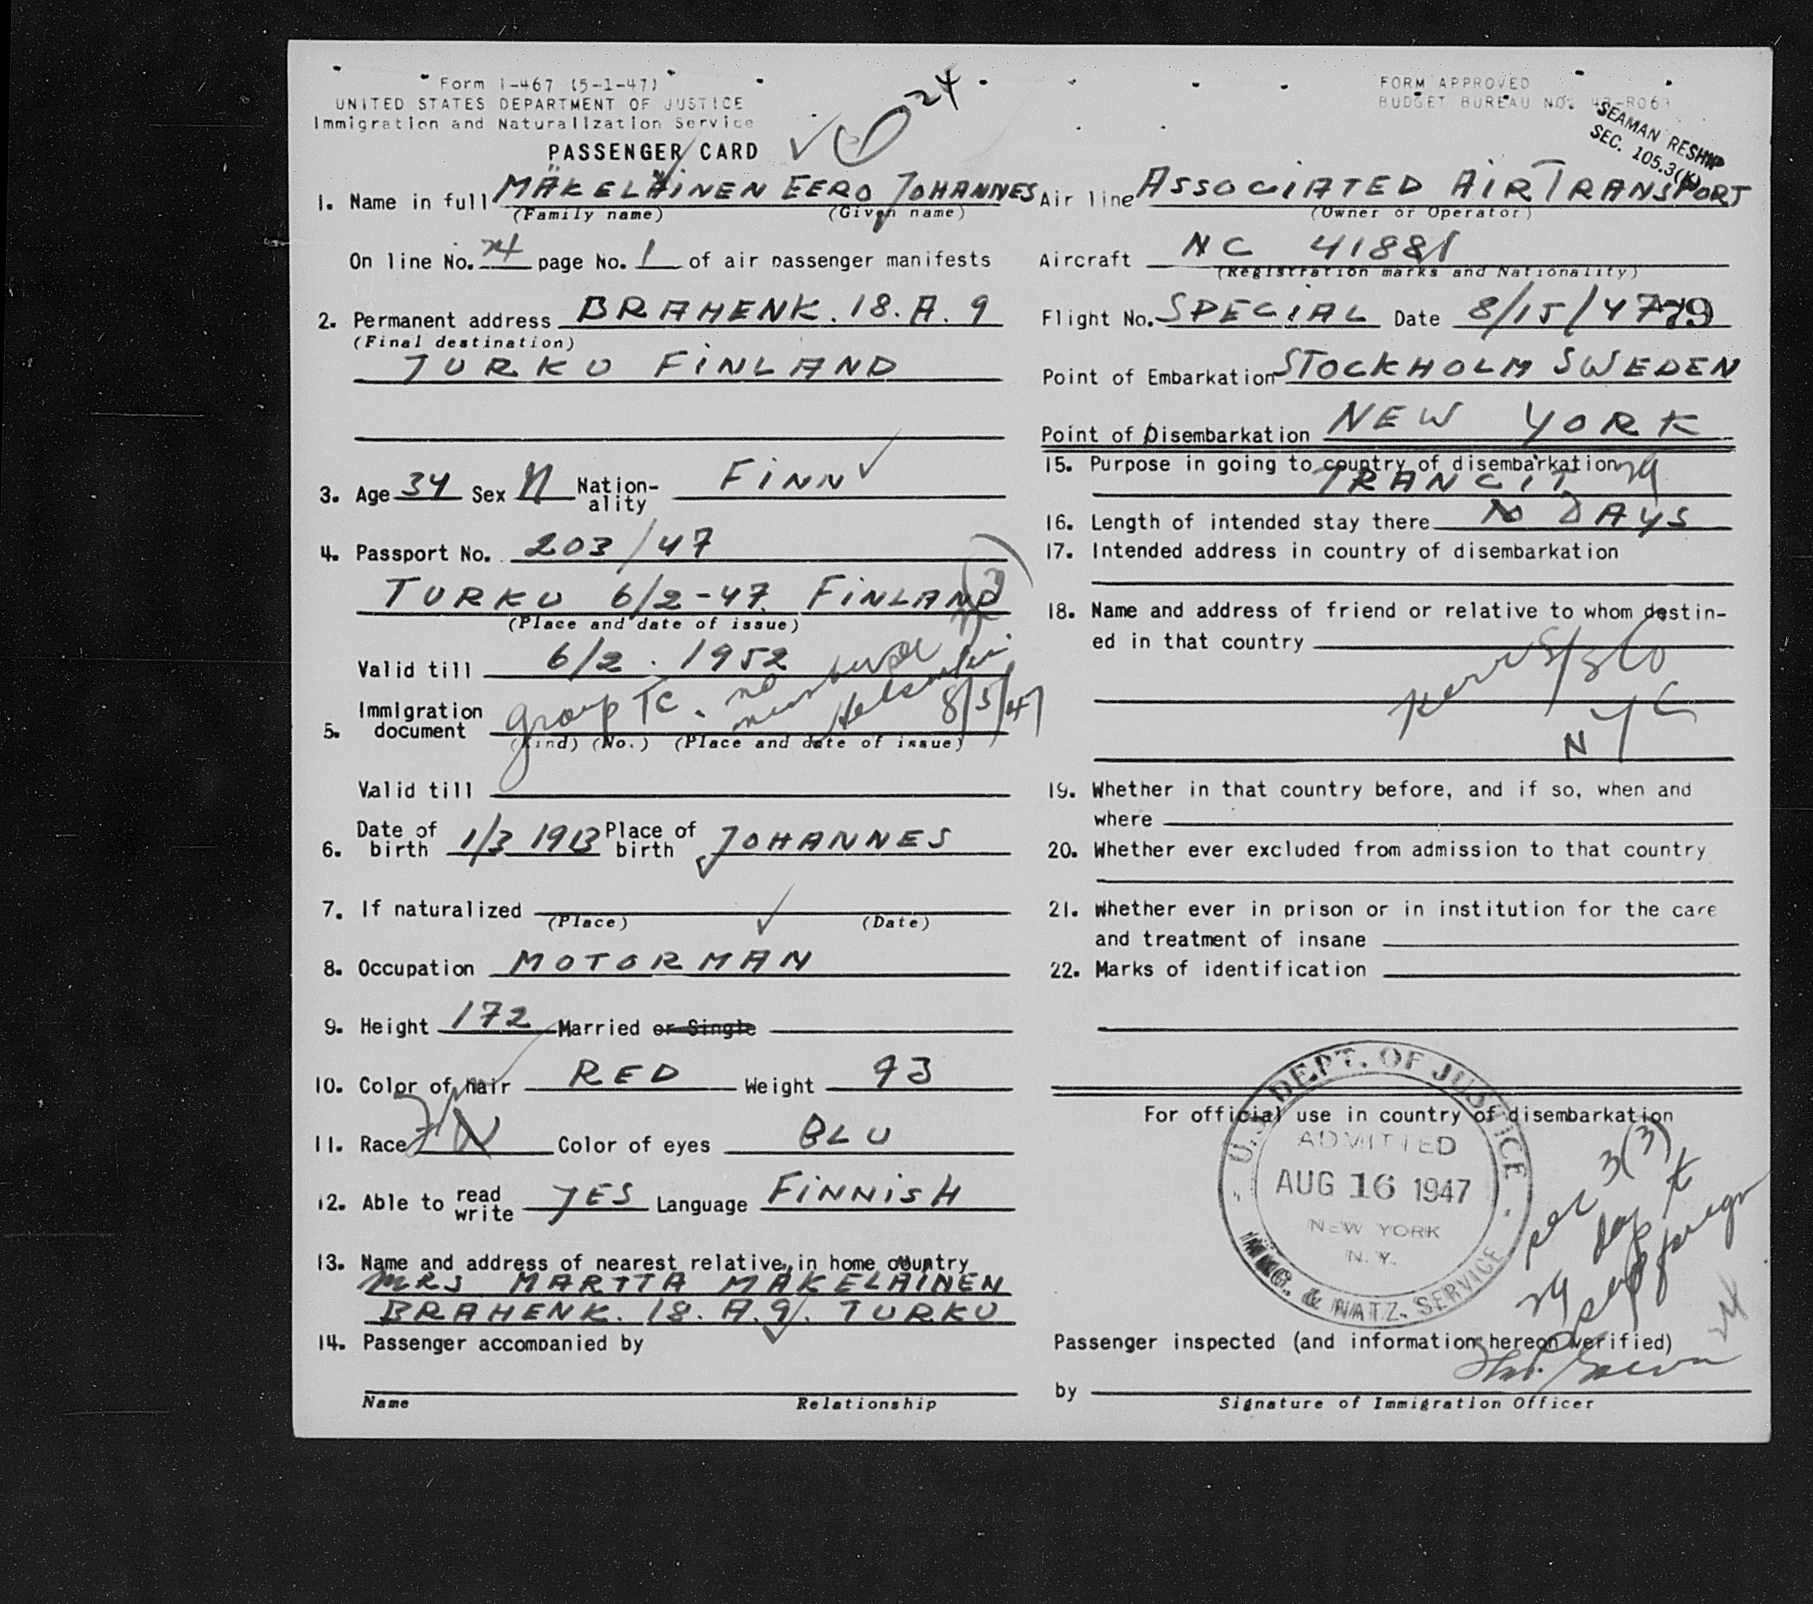 Form I-467 (5-1-47)
UNITED STATES DEPARTMENT OF JUSTICE
Immigration and Naturalization Service
PASSENGER CARD
24
FORM APPROVED
BUDGET BUREAU NO. 43-R063
SEAMAN RESHIP
SEC. 105.3(K)
1. Name in full MÄKELÄINEN EERO JOHANNES
(Family name) (Given name)
On line No. 24 page No. 1 of air passenger manifests
2. Permanent address BRAHENK. 18. A. 9
(Final destination)
TURKU FINLAND
3. Age 34 Sex M Nation-ality FINN
4. Passport No. 203/47
TURKU 6/2-47 FINLAND
(Place and date of issue)
Valid till 6/2. 1952
5. Immigration document group TC. no number Helsinki 8/5/47
(Kind) (No.) (Place and date of issue)
Valid till
6. Date of birth 1/3 1913 Place of birth JOHANNES
7. If naturalized
(Place) (Date)
8. Occupation MOTORMAN
9. Height 172 Married or Single
10. Color of hair RED Weight 93
11. Race FIN Color of eyes BLU
12. Able to read write YES Language FINNISH
13. Name and address of nearest relative in home country
MRS MARTTA MÄKELÄINEN
BRAHENK. 18. A. 9. TURKU
14. Passenger accompanied by
Name Relationship
Air line ASSOCIATED AIR TRANSPORT
(Owner or Operator)
Aircraft NC 41881
(Registration marks and Nationality)
Flight No. SPECIAL Date 8/15/47
79
Point of Embarkation STOCKHOLM SWEDEN
Point of Disembarkation NEW YORK
15. Purpose in going to country of disembarkation
TRANCIT
16. Length of intended stay there DAYS
29
17. Intended address in country of disembarkation
18. Name and address of friend or relative to whom destin-
ed in that country
NYC
19. Whether in that country before, and if so, when and
where
20. Whether ever excluded from admission to that country
21. Whether ever in prison or in institution for the care
and treatment of insane
22. Marks of identification
For official use in country of disembarkation
U.S. DEPT. OF JUSTICE
ADMITTED
AUG 16 1947
NEW YORK
N.Y.
IMMG. & NATZ. SERVICE
sec 3(3)
29 days
reship foreign
24
Passenger inspected (and information hereon verified)
by
Signature of Immigration Officer